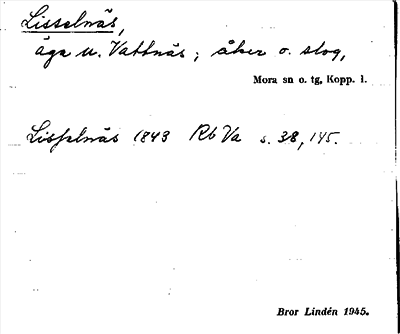 Lisselnäs,
äga u. Vattnäs; åker o. slog,
Mora sn o. tg, Kopp. l.
Lisselnäs 1843 Rb Va s. 38, 145.
Bror Lindén 1945.